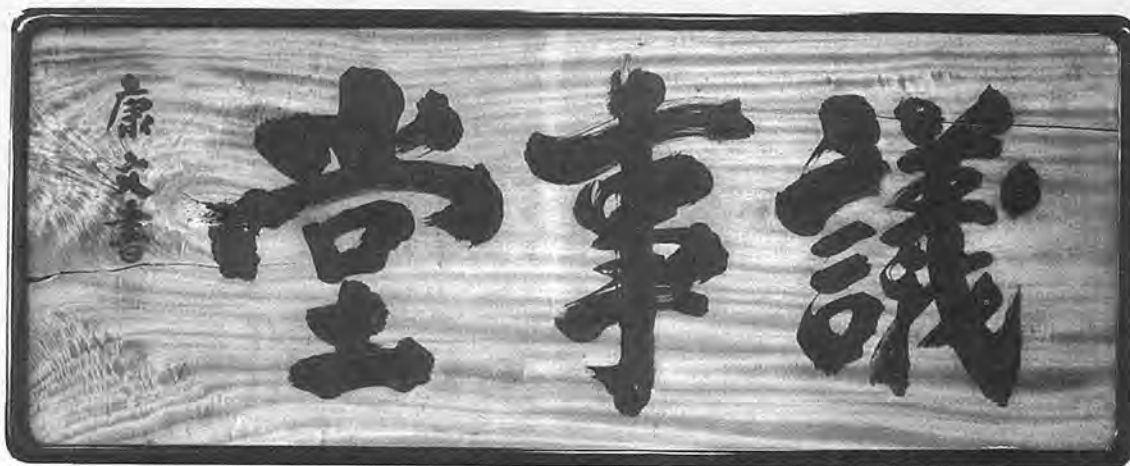 議事堂
康文書